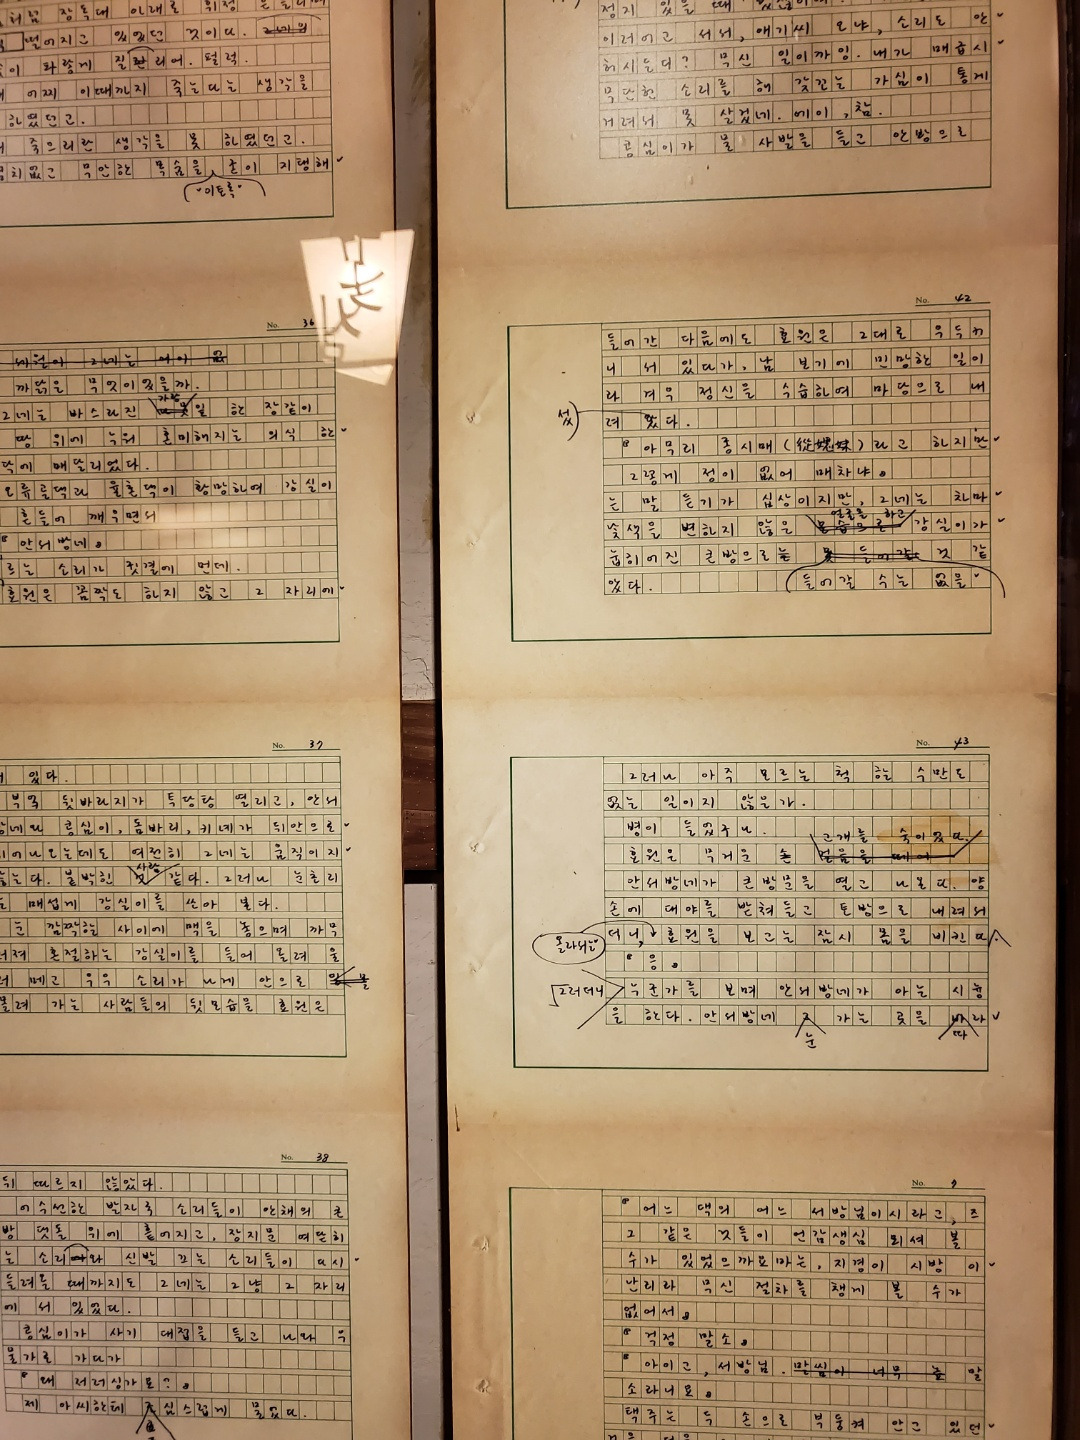 떨어지고 있었던 것이다.
파랗게 질려. 털럭.
어찌 이때까지 죽는다는 생각을
하였던고.
죽으리란 생각을 못 하였던고.
없고 무안한 목숨을 존이 지탱해
"이토록"
No. 36
세월이 그네는 어이 없
까닭을 무엇이었을까.
가랑
그네는 바스라진 잎 한 장같이
땅 위에 누워 혼미해지는 의식 한
에 매달리었다.
오류골댁과 율촌댁이 황망하여 강실이
흔들어 깨우면서
"안서방네.
르는 소리가 귓결에 먼데.
효원은 꼼짝도 하지 않고 그 자리에
No. 37
있다.
부엌 뒷바라지가 특당탕 열리고, 안서
방네와 콩심이, 돔바리, 키네가 뒤안으로
어나오는데도 여전히 그네는 움직이지
사람
않는다. 붙박힌 것 같다. 그러나 눈초리
매섭게 강실이를 쏘아 본다.
눈 깜짝할 사이에 맥을 놓으며 까무
러져 혼절하는 강실이를 들어 올려 을
메고 우우 소리가 나게 안으로 몰
몰려 가는 사람들의 뒷모습을 효원은
No. 38
뒤 따르지 않았다.
어수선한 발자국 소리들이 안채의 큰
방 댓돌 위에 흩어지고, 장지문 여닫히
는 소리와 신발 끄는 소리들이 다시
들려올 때까지도 그네는 그냥 그 자리
에 서 있었다.
콩심이가 사기 대접을 들고 나와 우
물가로 가다가
"왜 저러싱가요?.
제 아씨한테 심스럽게 물었다.
정지 있을 때
이러어고 서서, 애기씨 오냐, 소리도 안
허시든디? 무신 일이까잉. 내가 매급시
무단헌 소리를 해 갖꼬는 가심이 통게
거려서 못 살겄네. 에이, 참.
콩심이가 물 사발을 들고 안방으로
No. 42
들어간 다음에도 효원은 그대로 우두커
니 서 있다가, 남 보기에 민망한 일이
라 겨우 정신을 수습하여 마당으로 내
섰
려 왔다.
"아무리 종시매(從媤妹)라고 하지만
그렇게 정이 없어 매차냐.
는 말 듣기가 십상이지만, 그네는 차마
얼굴을 하고
낯색을 변하지 않은 모습으로 강실이가
눕히어진 큰방으로는 못 들어갈 것 같
았다.
들어갈 수는 없을
No. 43
그러나 아주 모르는 척 할 수만도
없는 일이지 않은가.
병이 들었구나.
고개를 숙이었다.
효원은 무거운 손 걸음을 떼어
안서방네가 큰방문을 열고 나온다. 양
손에 대야를 받쳐들고 토방으로 내려서
올라서는
더니, 효원을 보고는 잠시 몸을 비킨다.
"응.
그러더니
누군가를 보며 안서방네가 아는 시늉
을 한다. 안서방네 그 가는 곳을 바라
눈
따
No. 9
"어느 댁의 어느 서방님이시라고, 즈
그 같은 것들이 언감생심 뫼셔 볼
수가 있었으까요마는, 지경이 시방 이
난리라 무신 절차를 챙게 볼 수가
없어서.
"걱정 말소.
"아이고, 서방님. 말씸이 너무 높 말
소라니요.
택주는 두 손으로 부둥켜 안고 있던